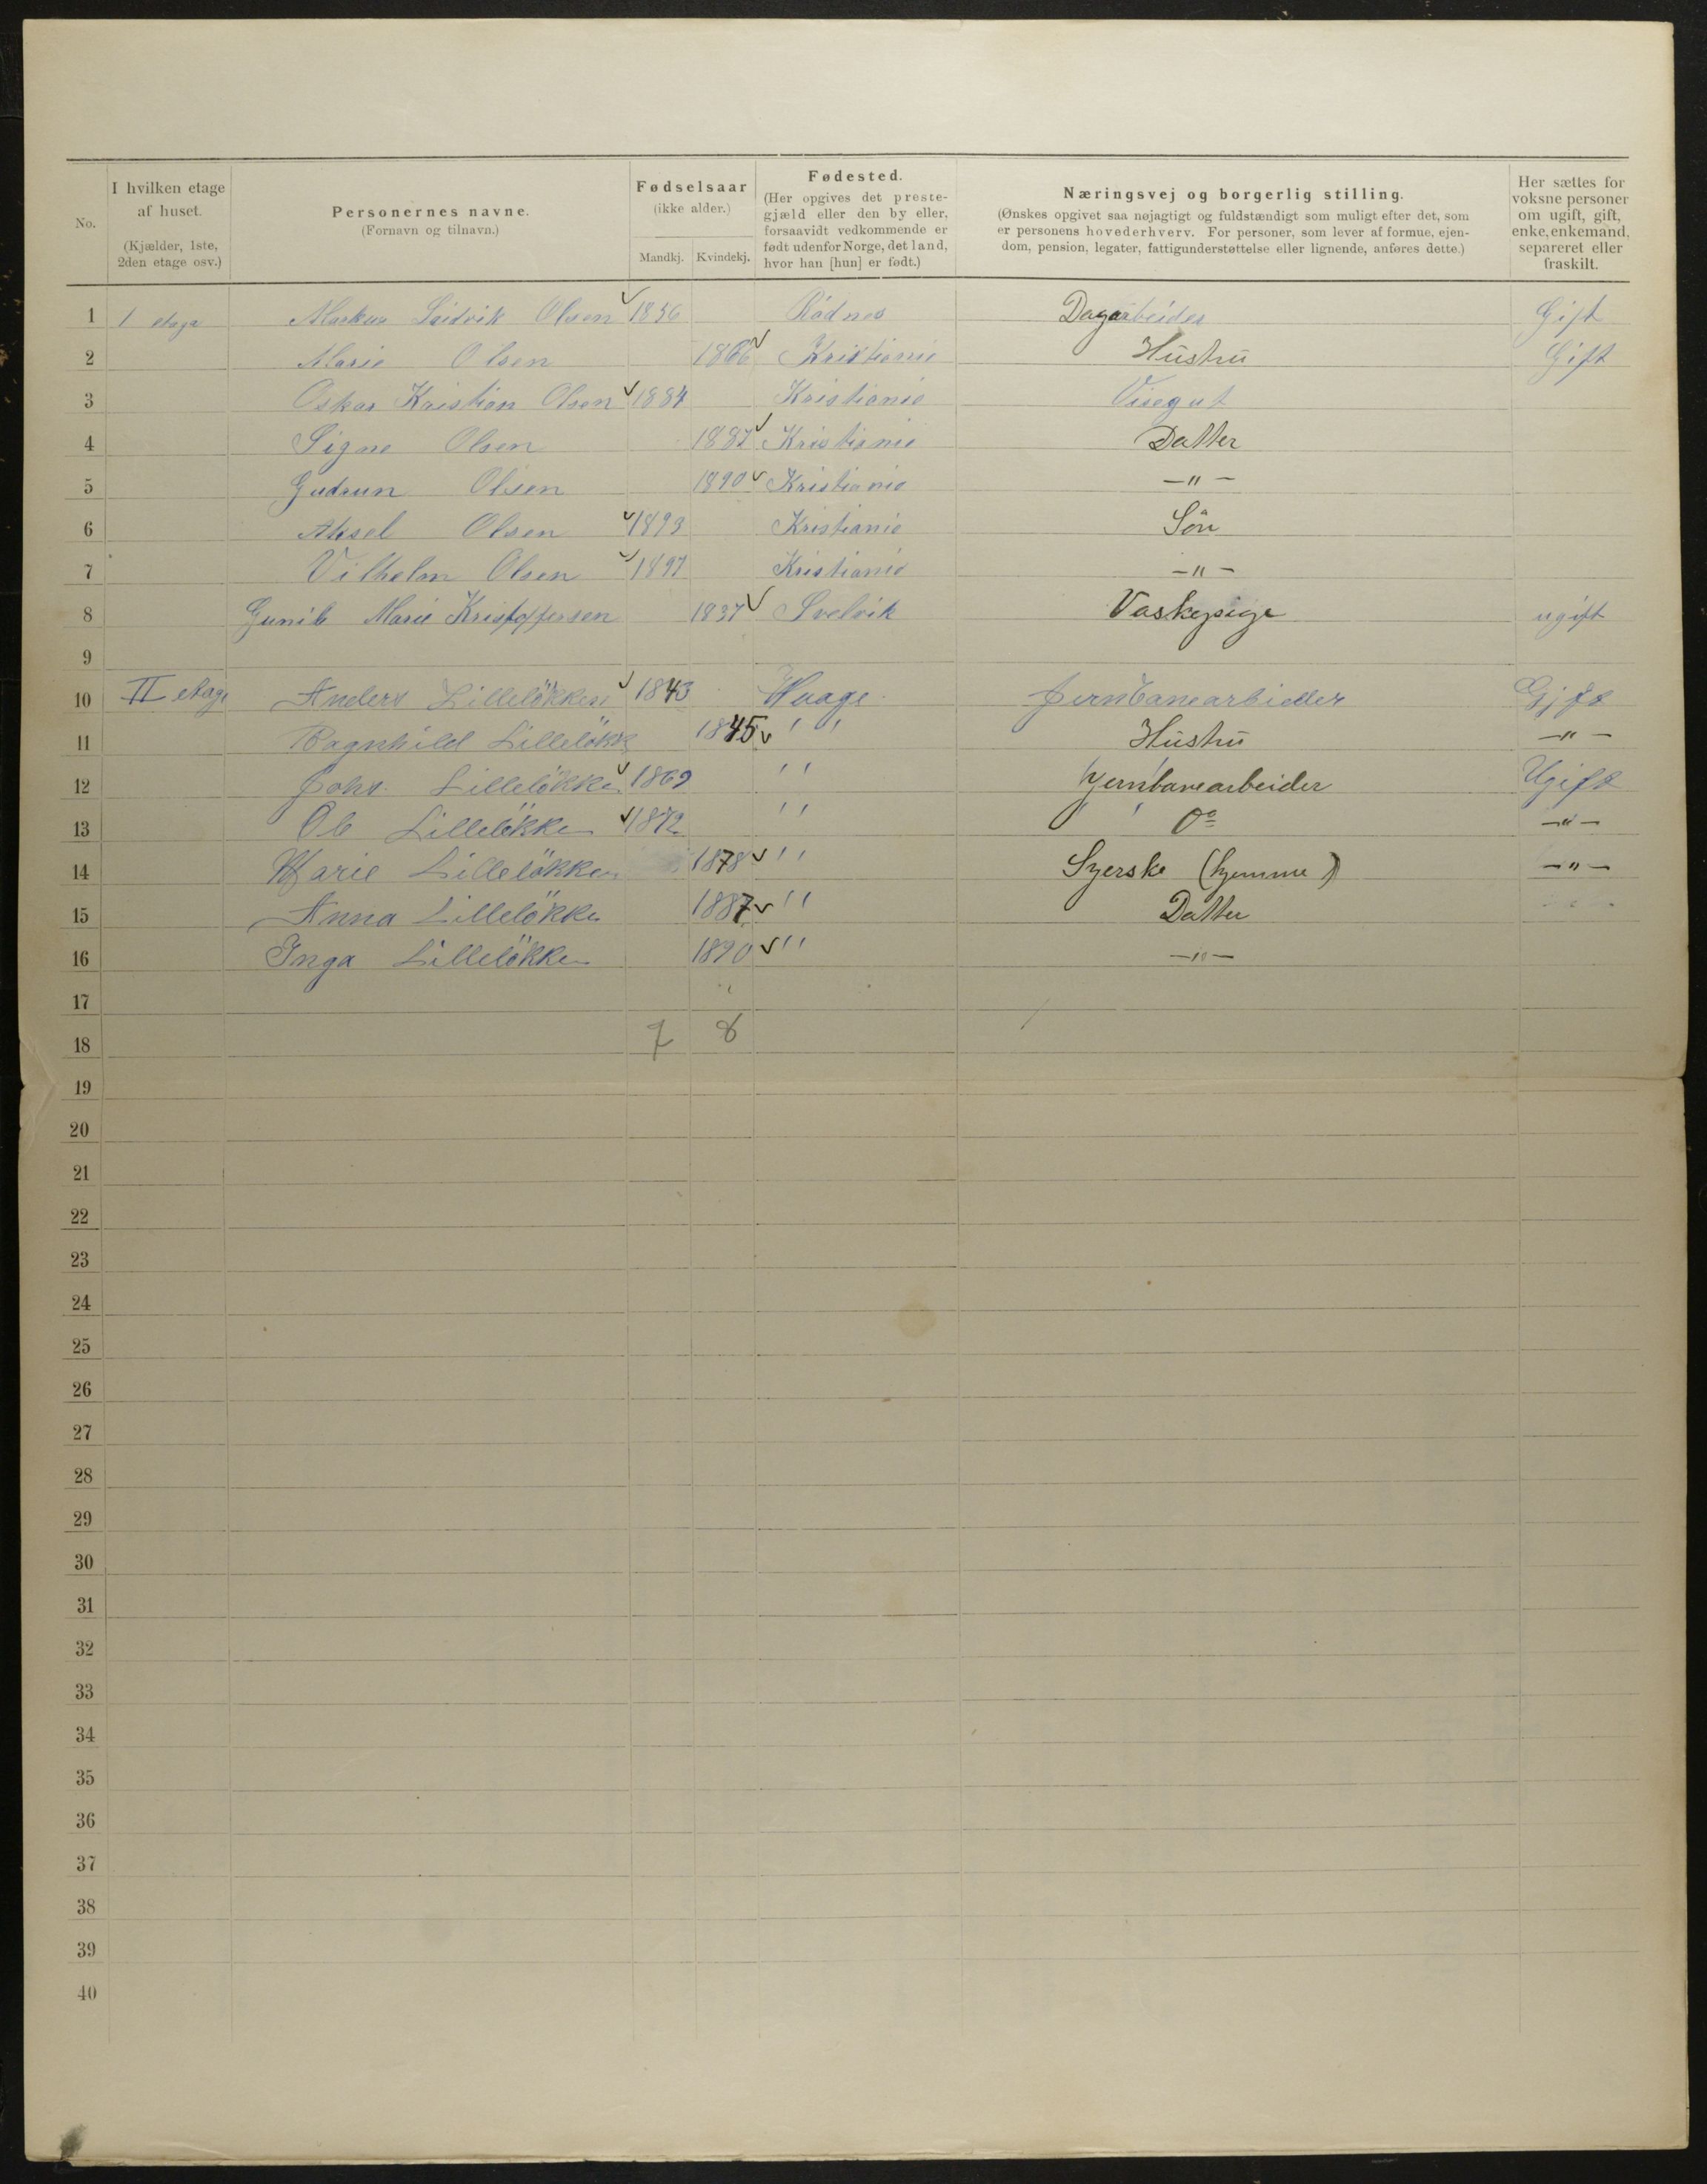 No.
I hvilken etage
af huset.
(Kjælder, 1ste,
2den etage osv.)
Personernes navne.
(Fornavn og tilnavn.)
Fødselsaar
(ikke alder.)
Mandkj. Kvindekj.
Fødested.
(Her opgives det preste-
gjæld eller den by eller,
forsaavidt vedkommende er
født udenfor Norge, det land,
hvor han [hun] er født.)
Næringsvej og borgerlig stilling.
(Ønskes opgivet saa nøjagtigt og fuldstændigt som muligt efter det, som
er personens hovederhverv. For personer, som lever af formue, ejen-
dom, pension, legater, fattigunderstøttelse eller lignende, anføres dette.)
Her sættes for
voksne personer
om ugift, gift,
enke, enkemand,
separeret eller
fraskilt.
1 1 etage Markus Olsen 1856 Rødnes Dagarbeider Gift
2 Marie Olsen 1866 Kristiania Hustru Gift
3 Oskar Kristian Olsen 1884 Kristiania Visegut
4 Signe Olsen 1887 Kristiania Datter
5 Gudrun Olsen 1890 Kristiania — " —
6 Aksel Olsen 1893 Kristiania Sön
7 Vilhelm Olsen 1897 Kristiania — " —
8 Gunil Marie Kristoffersen 1837 Svelvik Vaskepige ugift
9
10 II etage Anders Lillelökken 1843 Vaage Jernbanearbieder Gift
11 Ragnhild Lillelökk 1845 " " Hustru — " —
12 Johs. Lillelökken 1869 " Hjernbanearbeider Ugift
13 Ole Lillelökken 1872 " Do — " —
14 Marie Lillelökken 1878 " Syerske (hjemme) — " —
15 Anna Lillelökken 1887 " Datter
16 Inga Lillelökken 1890 " — " —
17
18 7 8
19
20
21
22
23
24
25
26
27
28
29
30
31
32
33
34
35
36
37
38
39
40